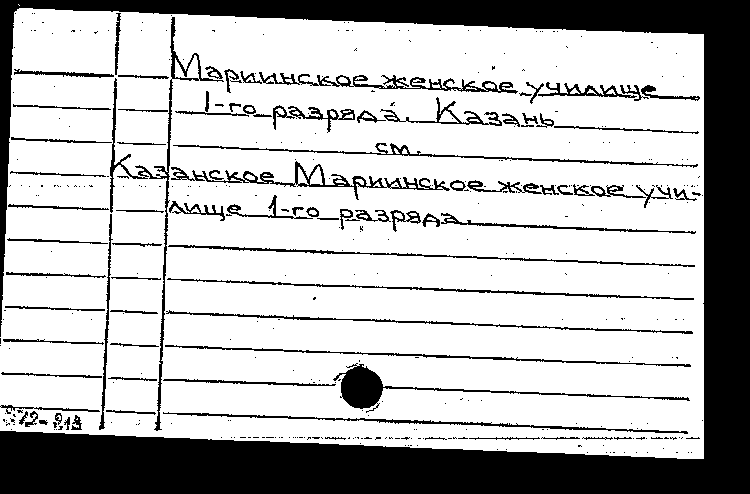 Мариинское женское училище
1-го разряда. Казань
см.
Казанское Мариинское женское учи-
лище 1-го разряда.